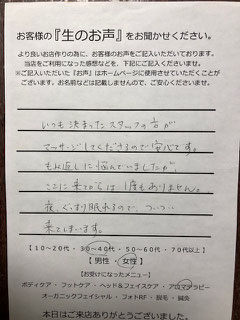 お客様の『生のお声』をお聞かせください。
より良いお店作りの為に、お客様のお声をご記入いただいております。
当店をご利用になった感想などを、下記にご記入くださいませ。
※ご記入いただいた『お声』はホームページに使用させていただくことが
ございます。お名前などは掲載しませんので、ご安心くださいませ。
いつも決まったスタッフの方が
マッサージしてくださるので安心です。
もみ返しに悩んでいましたが、
ここに来てからは1度もありません。
夜、ぐっすり眠れるので、つい・・・
来てしまいます。
【10〜20代・30〜40代・50〜60代・70代以上】
【男性・女性】
【お受けになったメニュー】
ボディケア・フットケア・ヘッド&フェイスケア・アロマテラピー
オーガニックフェイシャル・フォトRF・脱毛・鍼灸
本日はご来店ありがとうございました。